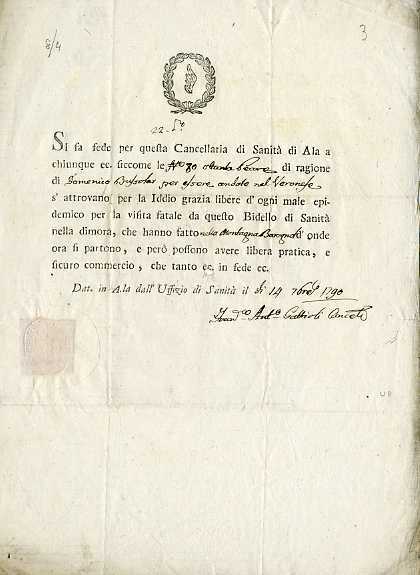 8/4
3
22.
Si fa fede per questa Cancellaria di Sanità di Ala a
chiunque ec. siccome le N.o 80 ottanta Pecore di ragione
di Domenico per essere andate nel Veronese
s' attrovano per la Iddio grazia libere d'ogni male epi-
demico per la visita fatale da questo Bidello di Sanità
nella dimora, che hanno fatto nella Montagna onde
ora si partono, e però possono avere libera pratica, e
sicuro commercio, che tanto ec. in fede ec.
Dat. in Ala dall' Uffizio di Sanità il dì 14 7bre 1790